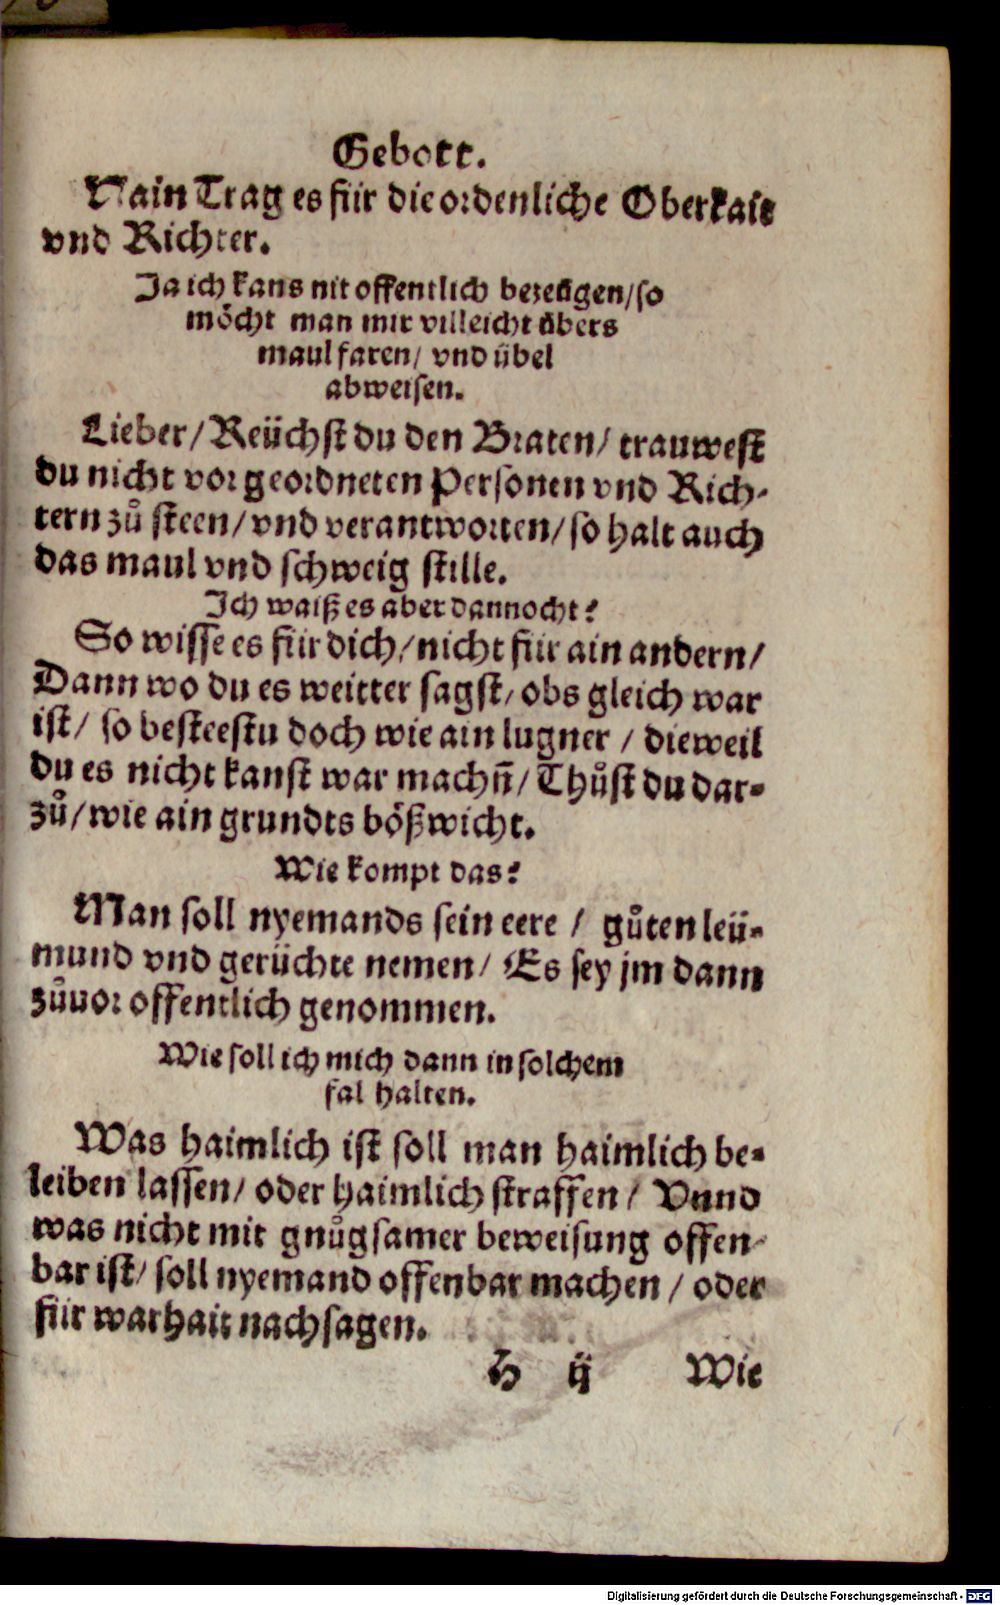 Gebott.
Nain Trag es für die ordenliche Oberkait
vnd Richter.
Ja ich kans nit offentlich bezeügen/ so
möcht man mir villeicht übers
maul faren/ vnd übel
abweisen.
Lieber/ Reüchst du den Braten/ trauwest
du nicht vor geordneten Personen vnd Rich-
tern zů steen/ vnd verantworten/ so halt auch
das maul vnd schweig stille.
Ich waiß es aber dannocht?
So wisse es für dich/ nicht für ain andern/
Dann wo du es weitter sagst/ obs gleich war
ist/ so besteestu doch wie ain lugner / dieweil
du es nicht kanst war machñ/ Thůst du dar-
zů/ wie ain grundts bößwicht.
Wie kompt das?
Man soll nyemands sein eere / gůten leü-
mund vnd gerüchte nemen/ Es sey jm dann
zůuor offentlich genommen.
Wie soll ich mich dann in solchem
fal halten.
Was haimlich ist soll man haimlich be-
leiben lassen/ oder haimlich straffen/ Vnnd
was nicht mit gnůgsamer beweisung offen-
bar ist/ soll nyemand offenbar machen / oder
für warhait nachsagen.
H ij Wie
Digitalisierung gefördert durch die Deutsche Forschungsgemeinschaft - DFG